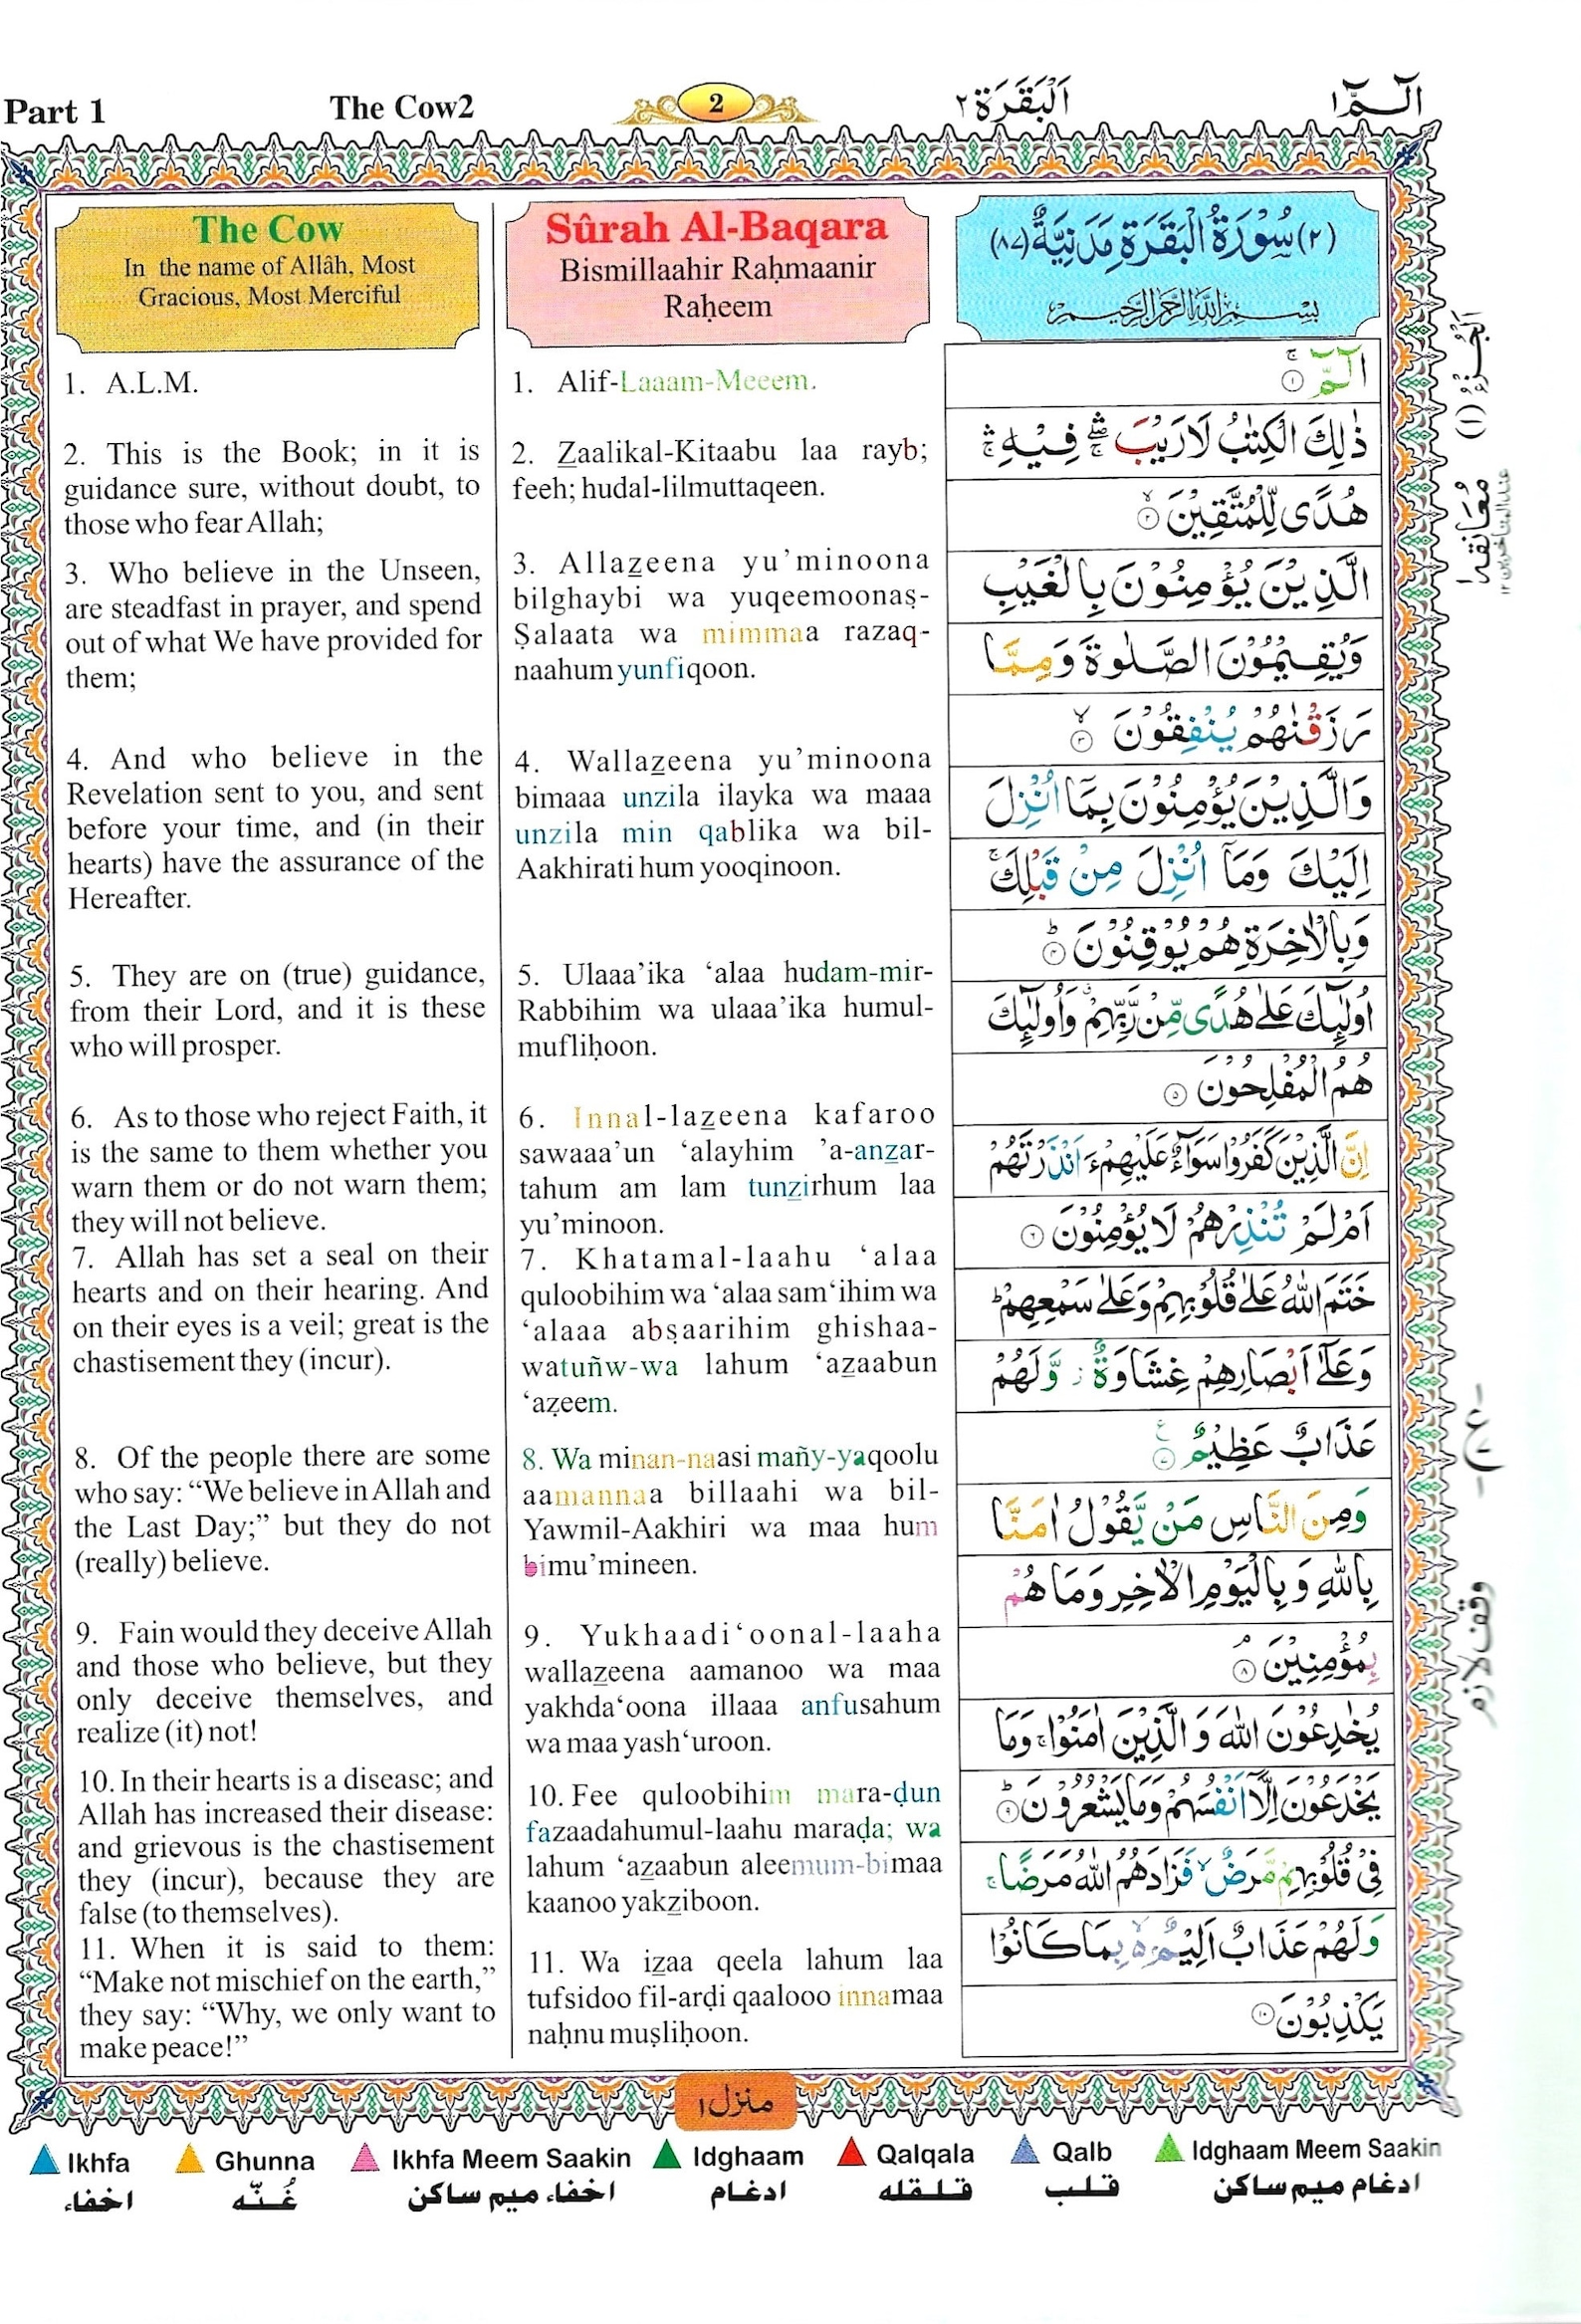 Part 1
The Cow2
2
اَلْبَقَرَة ٢
الٓـمّٓ ١
The Cow
In the name of Allâh, Most
Gracious, Most Merciful
1. A.L.M.
2. This is the Book; in it is
guidance sure, without doubt, to
those who fear Allah;
3. Who believe in the Unseen,
are steadfast in prayer, and spend
out of what We have provided for
them;
4. And who believe in the
Revelation sent to you, and sent
before your time, and (in their
hearts) have the assurance of the
Hereafter.
5. They are on (true) guidance,
from their Lord, and it is these
who will prosper.
6. As to those who reject Faith, it
is the same to them whether you
warn them or do not warn them;
they will not believe.
7. Allah has set a seal on their
hearts and on their hearing. And
on their eyes is a veil; great is the
chastisement they (incur).
8. Of the people there are some
who say: “We believe in Allah and
the Last Day;” but they do not
(really) believe.
9. Fain would they deceive Allah
and those who believe, but they
only deceive themselves, and
realize (it) not!
10. In their hearts is a disease; and
Allah has increased their disease:
and grievous is the chastisement
they (incur), because they are
false (to themselves).
11. When it is said to them:
“Make not mischief on the earth,”
they say: “Why, we only want to
make peace!”
Sûrah Al-Baqara
Bismillaahir Raḥmaanir
Raḥeem
1. Alif-Laaam-Meeem.
2. Z̲aalikal-Kitaabu laa rayb;
feeh; hudal-lilmuttaqeen.
3. Allaz̲eena yu’minoona
bilghaybi wa yuqeemoonaṣ-
Ṣalaata wa mimmaa razaq-
naahum yunfiqoon.
4. Wallaz̲eena yu’minoona
bimaaa unzila ilayka wa maaa
unzila min qablika wa bil-
Aakhirati hum yooqinoon.
5. Ulaaa’ika ‘alaa hudam-mir-
Rabbihim wa ulaaa’ika humul-
mufliḥoon.
6. Innal-laz̲eena kafaroo
sawaaa’un ‘alayhim ’a-anz̲ar-
tahum am lam tunz̲irhum laa
yu’minoon.
7. Khatamal-laahu ‘alaa
quloobihim wa ‘alaa sam‘ihim wa
‘alaaa abṣaarihim ghishaa-
watuñw-wa lahum ‘az̲aabun
‘aẓeem.
8. Wa minan-naasi mañy-yaqoolu
aamannaa billaahi wa bil-
Yawmil-Aakhiri wa maa hum
bimu’mineen.
9. Yukhaadi‘oonal-laaha
wallaz̲eena aamanoo wa maa
yakhda‘oona illaaa anfusahum
wa maa yash‘uroon.
10. Fee quloobihim mara-ḍun
fazaadahumul-laahu maraḍa; wa
lahum ‘az̲aabun aleemum-bimaa
kaanoo yakz̲iboon.
11. Wa iz̲aa qeela lahum laa
tufsidoo fil-arḍi qaalooo innamaa
naḥnu muṣliḥoon.
(٢) سُوْرَةُ الْبَقَرَةِ مَدَنِيَّةٌ (٨٧)
بِسْمِ اللهِ الرَّحْمٰنِ الرَّحِيْمِ
الٓمّٓ ۚ ١
ذٰلِكَ الْكِتٰبُ لَا رَيْبَ ۛۖ فِيْهِ ۛۚ
هُدًى لِّلْمُتَّقِيْنَ ۙ ٢
الَّذِيْنَ يُؤْمِنُوْنَ بِالْغَيْبِ
وَيُقِيْمُوْنَ الصَّلٰوةَ وَمِمَّا
رَزَقْنٰهُمْ يُنْفِقُوْنَ ۙ ٣
وَالَّذِيْنَ يُؤْمِنُوْنَ بِمَآ اُنْزِلَ
اِلَيْكَ وَمَآ اُنْزِلَ مِنْ قَبْلِكَ ۚ
وَبِالْاٰخِرَةِ هُمْ يُوْقِنُوْنَ ؕ ٤
اُولٰٓئِكَ عَلٰى هُدًى مِّنْ رَّبِّهِمْ ۗ وَاُولٰٓئِكَ
هُمُ الْمُفْلِحُوْنَ ٥
اِنَّ الَّذِيْنَ كَفَرُوْا سَوَآءٌ عَلَيْهِمْ ءَاَنْذَرْتَهُمْ
اَمْ لَمْ تُنْذِرْهُمْ لَا يُؤْمِنُوْنَ ٦
خَتَمَ اللهُ عَلٰى قُلُوْبِهِمْ وَعَلٰى سَمْعِهِمْ ؕ
وَعَلٰٓى اَبْصَارِهِمْ غِشَاوَةٌ ز وَّلَهُمْ
عَذَابٌ عَظِيْمٌ ۧ ٧
وَمِنَ النَّاسِ مَنْ يَّقُوْلُ اٰمَنَّا
بِاللهِ وَبِالْيَوْمِ الْاٰخِرِ وَمَا هُمْ
بِمُؤْمِنِيْنَ ۘ ٨
يُخٰدِعُوْنَ اللهَ وَالَّذِيْنَ اٰمَنُوْا ۚ وَمَا
يَخْدَعُوْنَ اِلَّآ اَنْفُسَهُمْ وَمَا يَشْعُرُوْنَ ؕ ٩
فِيْ قُلُوْبِهِمْ مَّرَضٌ ۙ فَزَادَهُمُ اللهُ مَرَضًا ۚ
وَلَهُمْ عَذَابٌ اَلِيْمٌۢ ۙ بِمَا كَانُوْا
يَكْذِبُوْنَ ١٠
اَلْجُزْءُ (١)
مُعَانقه ١
ع
وقف لازم
منزل ١
Ikhfa
اخفاء
Ghunna
غُنّه
Ikhfa Meem Saakin
اخفاء ميم ساكن
Idghaam
ادغام
Qalqala
قلقله
Qalb
قلب
Idghaam Meem Saakin
ادغام ميم ساكن